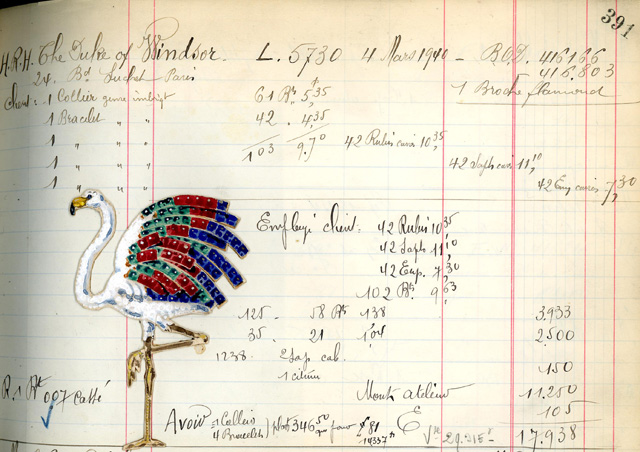 391
H.R.H. The Duke of Windsor. L. 5730 4 Mars 1940 - BOD. 416166
24. Bd Suchet - Paris 416.803
Client: 1 Collier genre 61 Bts 5,35 1 Broche flamand
1 Bracelet " " 42 . 4,35
1 " " 103 9.70 42 Rubis carrés 10,35
1 " " 42 Saph carrés 11,10
1 " " 42 Em carrées - 7,30
Employé client: 42 Rubis 10,35
42 Saph 11,10
42 Em. 7,30
102 Bts 9,63
125 - 58 Bts 138 3.933
35. 21 1,04 2.500
1238. 2 Sap cab. 150
1 citrin
R. 1 Bt 007 Cassé Monte atelier 11.250
105
Avoir = 1 Collier
4 Bracelets 346,50 pour £81
17.938